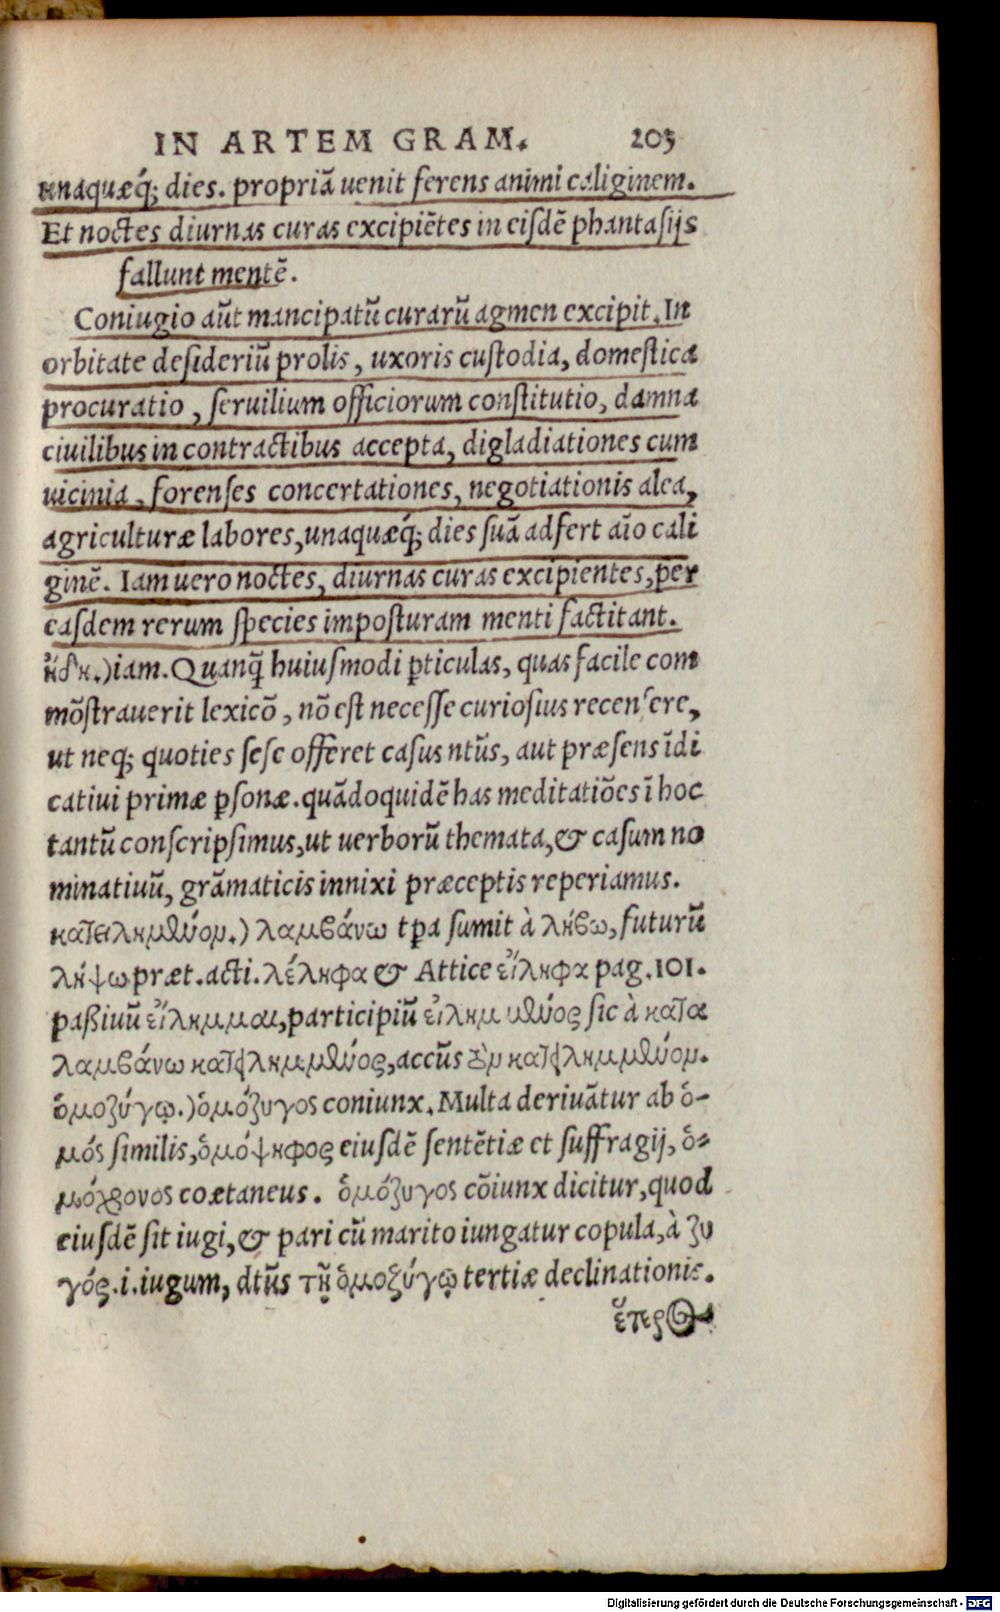 IN ARTEM GRAM. 203
unaquæq́; dies. propriā uenit ferens animi caliginem.
Et noctes diurnas curas excipiētes in eisdē phantasijs
fallunt mentē.
Coniugio aūt mancipatū curarū agmen excipit. In
orbitate desideriū prolis, uxoris custodia, domestica
procuratio, seruilium officiorum constitutio, damna
ciuilibus in contractibus accepta, digladiationes cum
uicinia, forenses concertationes, negotiationis alea,
agriculturæ labores, unaquæq́; dies suā adfert aīo cali
ginē. Iam uero noctes, diurnas curas excipientes, per
easdem rerum species imposturam menti factitant.
ἤδη.) iam. Quanq̄ huiusmodi ꝑticulas, quas facile com
mōstrauerit lexicō, nō est necesse curiosius recensere,
ut neq; quoties sese offeret casus ntūs, aut præsens īdi
catiui primæ ꝑsonæ. quādoquidē has meditatiōes ī hoc
tantū conscripsimus, ut uerborū themata, & casum no
minatiuū, grāmaticis innixi præceptis reperiamus.
κατειλημμένον.) λαμβάνω tꝑa sumit à λήβω, futurū
λήψω præt. acti. λέληφα & Attice εἴληφα pag. 101.
paßiuū εἴλημμαι, participiū εἰλημμένος sic à κατα
λαμβάνω κατειλημμένος, accūs τὸν κατειλημμένον.
ὁμοζύγῳ.) ὁμόζυγος coniunx. Multa deriuātur ab ὁ-
μός similis, ὁμόψηφος eiusdē sentētiæ et suffragij, ὁ-
μόχρονος coætaneus. ὁμόζυγος cōiunx dicitur, quod
eiusdē sit iugi, & pari cū marito iungatur copula, à ζυ
γός. i. iugum, dtūs τῇ ὁμοζύγῳ tertiæ declinationis.
ἕτερος
Digitalisierung gefördert durch die Deutsche Forschungsgemeinschaft - DFG